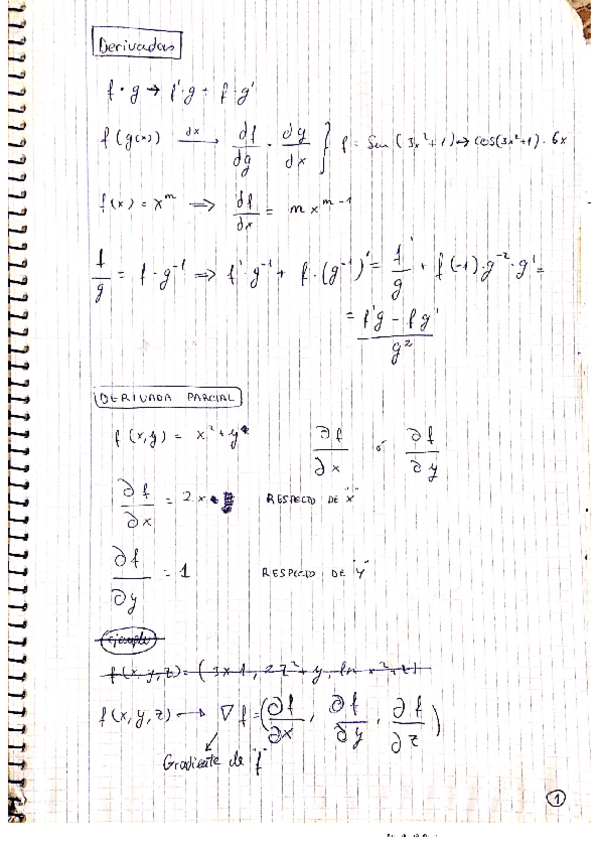 Derivadas
f · g → f'·g + f·g'
f(g(x)) dx→ df/dg · dg/dx } f = Sen(3x²+1) → cos(3x²+1)·6x
f(x) = x^m ⇒ df/dx = m x^(m-1)
f/g = f·g⁻¹ ⇒ f'·g⁻¹ + f·(g⁻¹)' = f'/g + f(-1)·g⁻²·g' =
= (f'g - fg')/g²
DERIVADA PARCIAL
f(x,y) = x² + y ∂f/∂x ó ∂f/∂y
∂f/∂x = 2x RESPECTO DE "x"
∂f/∂y = 1 RESPECTO DE "y"
Ejemplo
f(x,y,z) = (3x1, 2z²+y, ln x²+z)
f(x,y,z) → ∇f = (∂f/∂x, ∂f/∂y, ∂f/∂z)
Gradiente de "f"
1